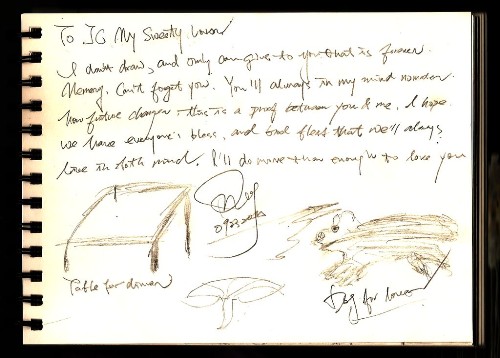 To JG My Sweetly Lover
I don't draw, and only can give to you that is forever
Memory. Can't forget you. You'll always in my mind no matter
how future change. this is a proof between you & me, I hope
we have everyone's bless, and that we'll always
love in both mind. I'll do more than enough to love you
Table for dinner
Dog for lover